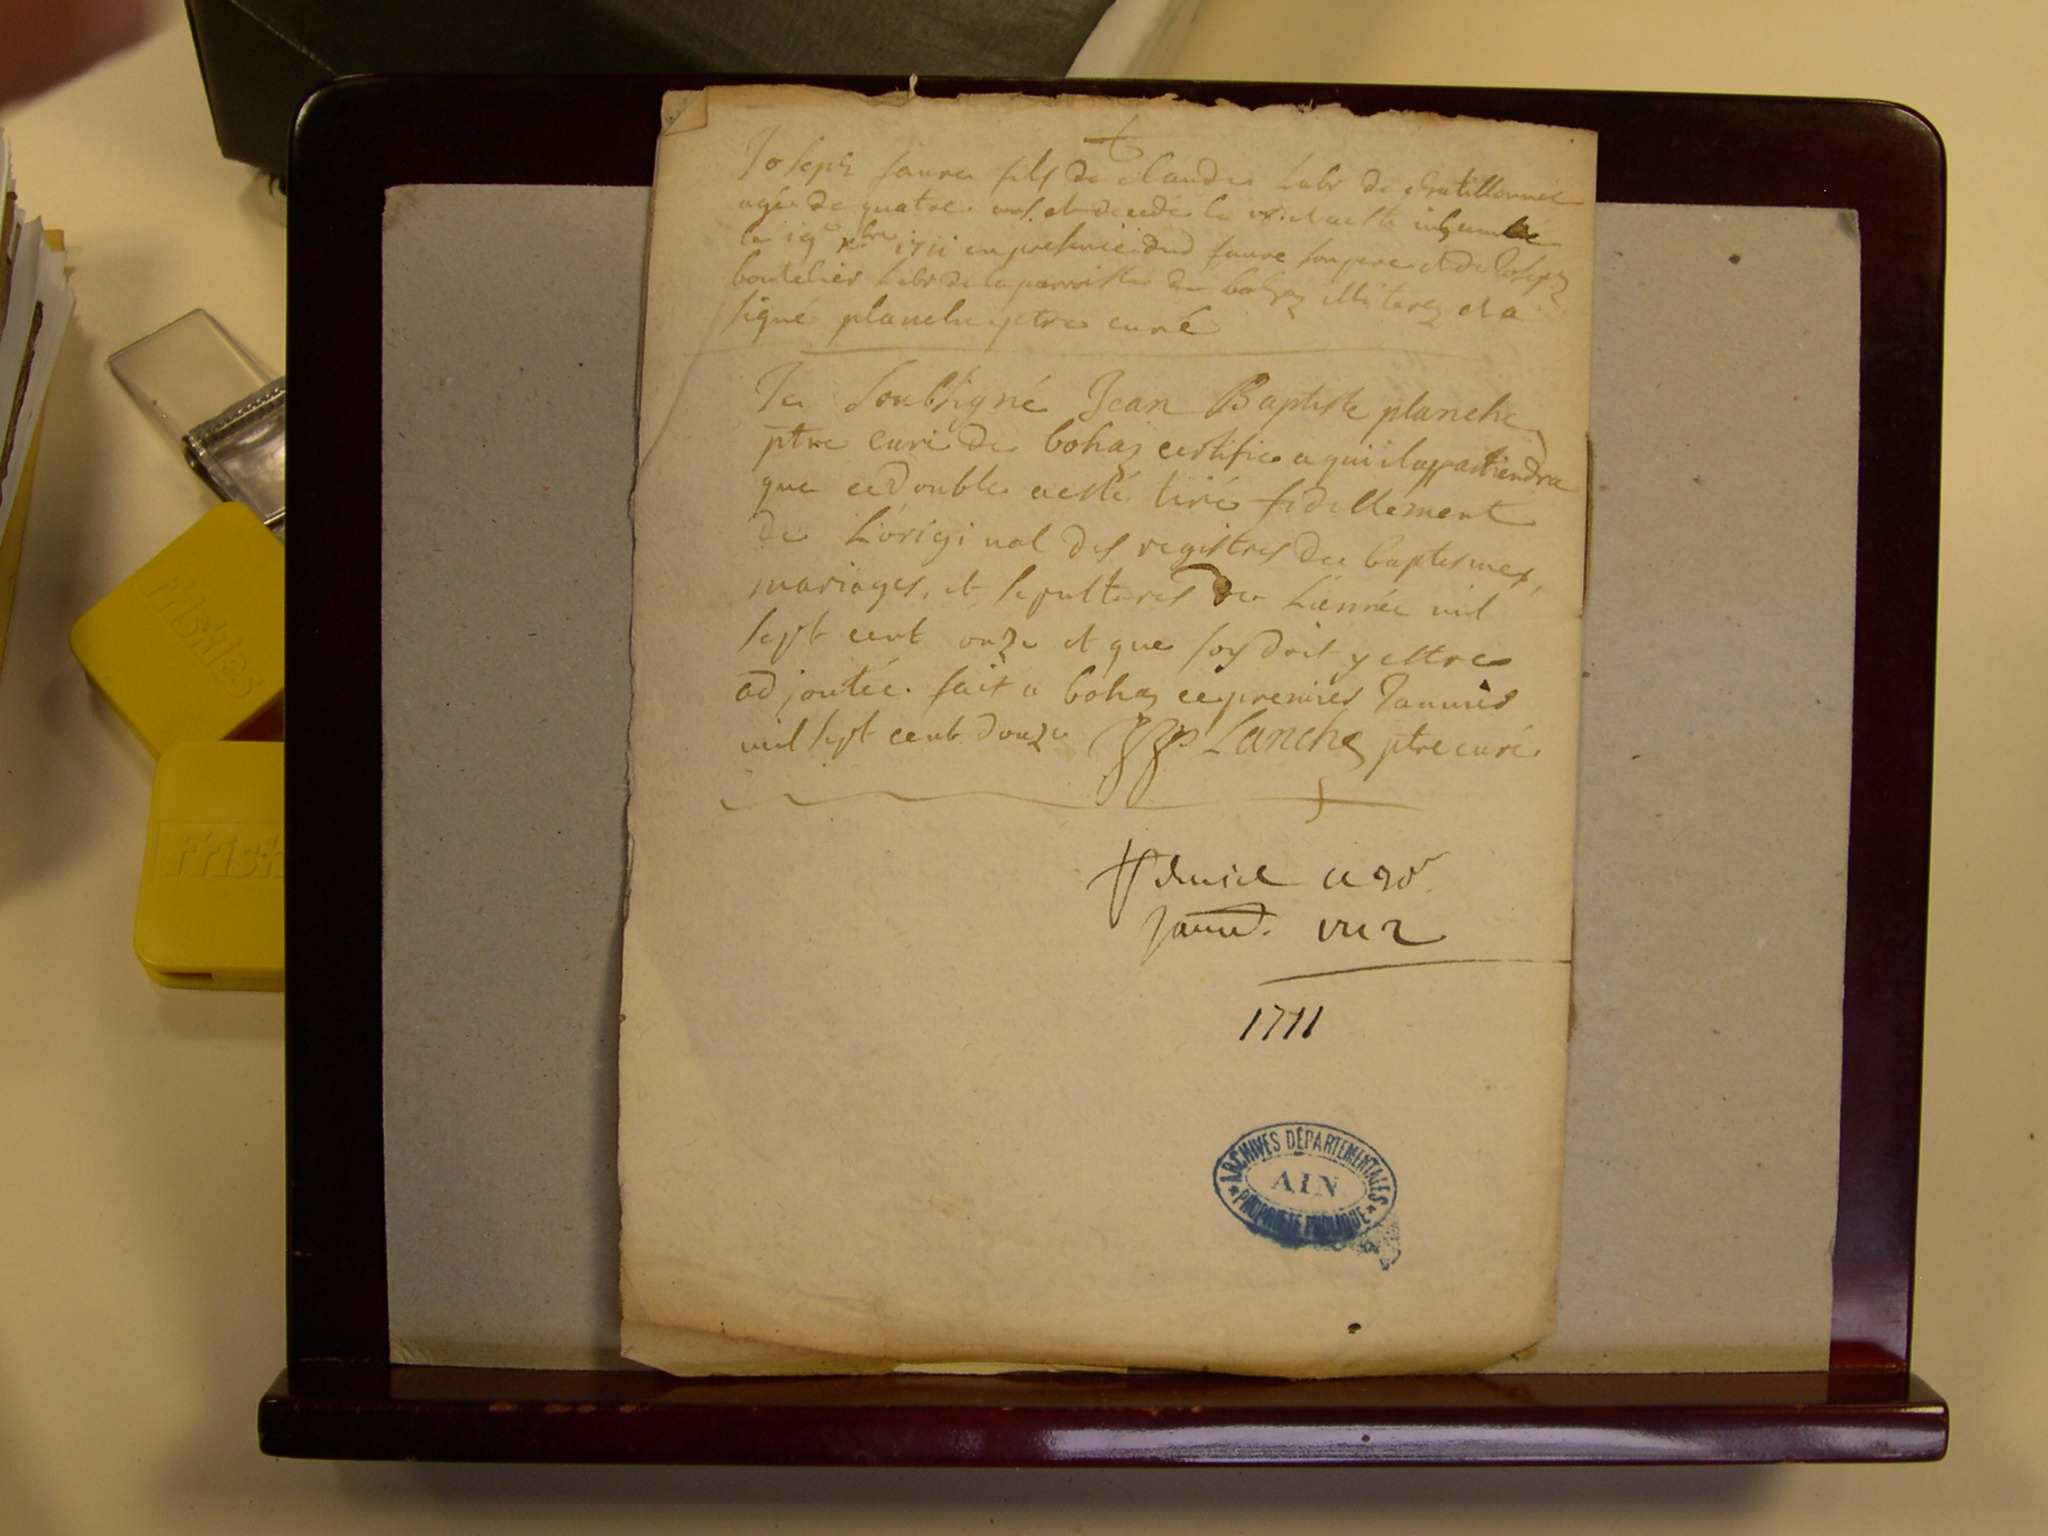 Joseph faure fils de claude Labr de chatillonnet
agé de quatre ans, et decedé le et a esté inhumé
le 19e xbre 1711 en presence dud faure son pere et de Joseph
boutelier Labr de la parroisse de bohaz illiterez et a
signé planche ptre curé
Je Soubsigné Jean Baptiste planche
ptre curé de bohaz certifie a qui il appartiendra
que ce double a esté tiré fidellement
de L'original des registres des baptesmes,
mariages, et sepultures de L'année mil
sept cent onze et que foy doit y estre
adjoutée. fait a bohaz ce premier Janvier
mil sept cent douze Planche ptre curé
a
Janv. 1712
1711
ARCHIVES DÉPARTEMENTALES
AIN
PROPRIÉTÉ PUBLIQUE
Friskies
Frisk